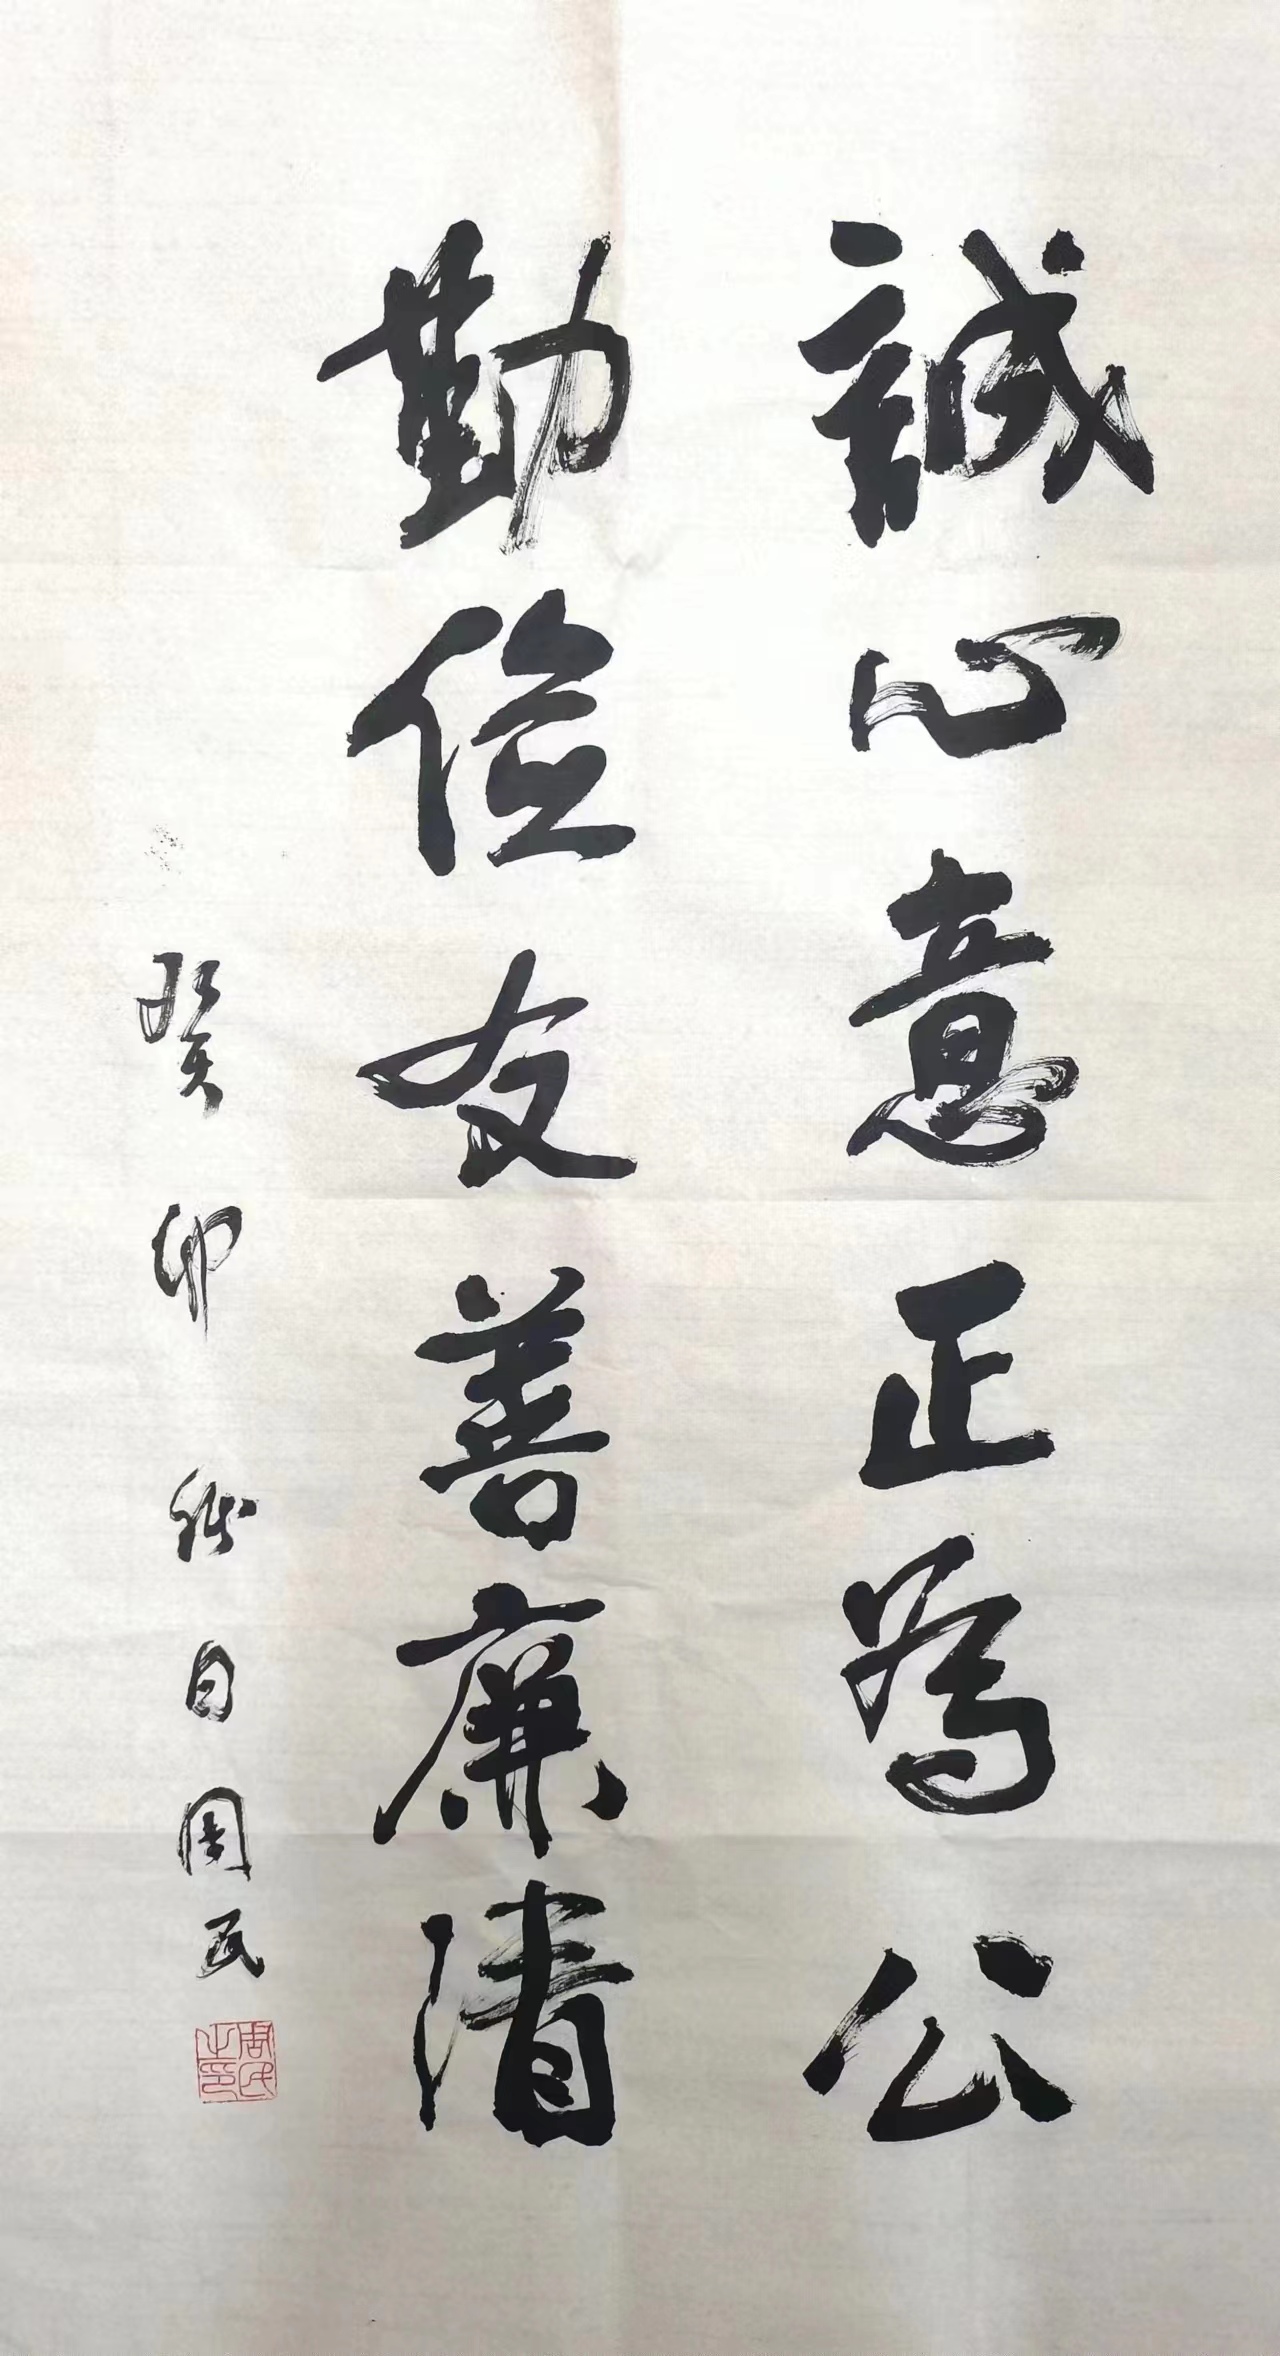 誠心意正為公
勤儉友善廉清
癸卯秋日周民
周民之印